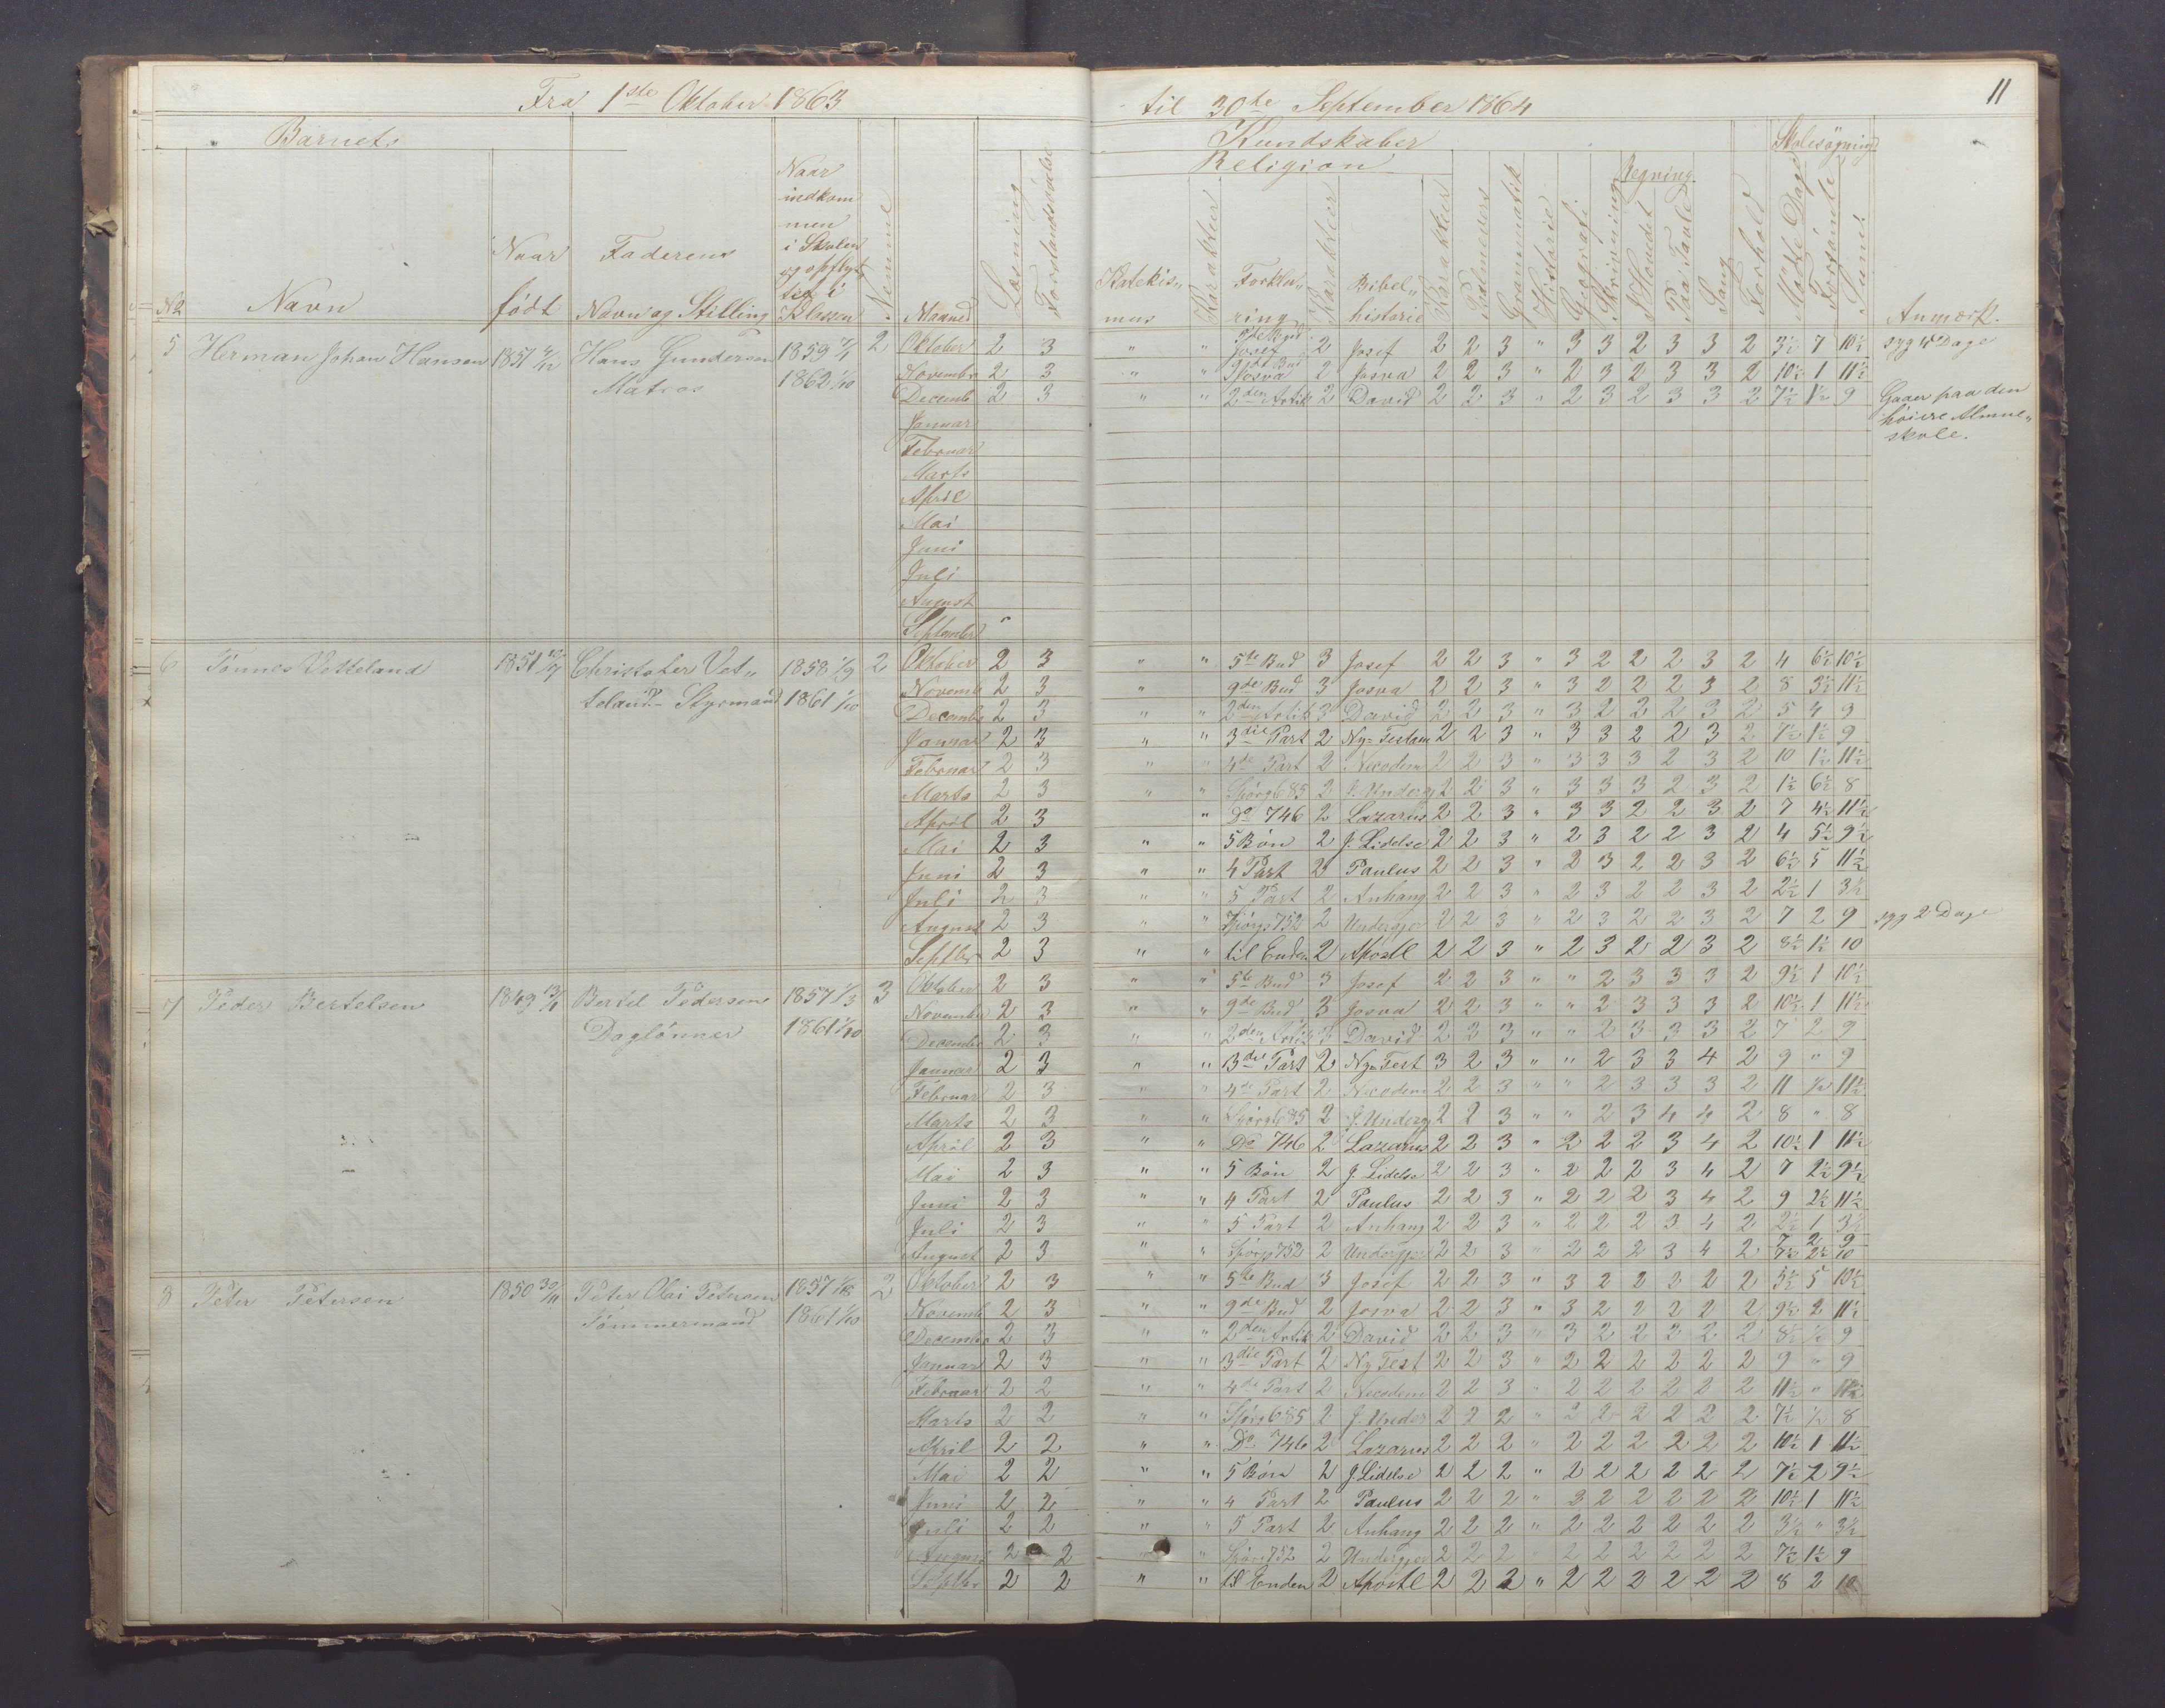 Fra 1ste Oktober 1863 til 30te September 1864 11
Barnets Kundskaber Skolesøgning
Religion Regning
No Navn Naar født Faderens Navn og Stilling Naar indkommen i Skolen og opflyttet i Klassen Nemme Maaned Læsning Forstandsøvelse Katekis„mus Karakter Forkla„ring Karakter Bibel„historie Karakter Psalmevers Grammatik Historie Geografi Skrivning I Hovedet Paa Tavle Sang Forhold Mødte Dage Forsømte Sum Anmærk.
5 Herman Johan Hansen 1851 Hans Gundersen 1859 2 Oktober 2 3 " " Josef 2 Josef 2 2 3 " 3 3 2 3 3 2 3½ 7 10½ syg 4 Dage
Matros 1862 1/10 Novembr 2 3 " " Josva 2 2 3 " 2 3 2 3 3 2 10½ 1 11½
Decemb 2 3 " " 2den Artik 2 David 2 2 3 " 2 3 2 3 3 2 7½ 1½ 9 Gaaer paa den
Januar høiere Almue„
Februar skole.
Marts
April
Mai
Juni
Juli
August
September
6 Tønnes Vetteland 1851 Christopher Vet„ 1858 1/9 2 Oktober 2 3 " " 5te Bud 3 Josef 2 2 3 " 3 2 2 2 3 2 4 6½ 10½
teland - Styrmand 1861 1/10 Novemb 2 3 " " 9de Bud 3 Josva 2 2 3 " 3 2 2 2 3 2 8 3½ 11½
Decembr 2 3 " " 2den Artik 3 David 2 2 3 " 3 2 2 2 3 2 5 4 9
Januar 2 3 " " 3die Part 2 Ny-Testam 2 2 3 " 3 3 2 2 3 2 7½ 1½ 9
Februar 2 3 " " 4de Part 2 Nicodem 2 2 3 " 3 3 3 2 3 2 10 1½ 11½
Marts 2 3 " " Spørg 685 2 J. Underg 2 2 3 " 3 3 3 2 3 2 1½ 6½ 8
April 2 3 " Do 746 2 Lazarus 2 2 3 " 3 3 2 2 3 2 7 4½ 11½
Mai 2 3 " " 5 Bøn 2 J. Lidelse 2 2 3 " 2 3 2 2 3 2 4 5½ 9½
Juni 2 3 " " 4 Part 2 Paulus 2 2 3 " 2 3 2 2 3 2 6½ 5 11½
Juli 2 3 " " 5 Part 2 Anhang 2 2 3 " 2 3 2 2 3 2 2½ 1 3½
August 2 3 " " Spørgs 752 2 Undergjer 2 2 3 " 2 3 2 2 3 2 7 2 9 syg 2 Dage
Septbr 2 3 " " til Enden 2 Apostl 2 2 3 " 2 3 2 2 3 2 8½ 1½ 10
7 Peder Bertelsen 1849 Bertel Pedersen 1857 1/3 3 Oktober 2 3 " " 5te Bud 3 Josef 2 2 3 " " 2 3 3 3 2 9½ 1 10½
Daglønner 1861 1/10 Novembr 2 3 " " 9de Bud 3 Josva 2 2 3 " " 2 3 3 3 2 10½ 1 11½
Decembr 2 3 " " 2den Artik 3 David 2 2 3 " " 2 3 3 3 2 7 2 9
Januar 2 3 " " 3die Part 2 Ny-Test 3 2 3 " " 2 3 3 4 2 9 " 9
Februar 2 3 " " 4de Part 2 Nicodem 2 2 3 " " 2 3 3 3 2 11 ½ 11½
Marts 2 3 " " Spørg 685 2 J. Underg 2 2 3 " " 2 3 4 4 2 8 " 8
April 2 3 " " Do 746 2 Lazarus 2 2 3 " 2 2 2 3 4 2 10½ 1 11½
Mai 2 3 " " 5 Bøn 2 J. Lidelse 2 2 3 " 2 2 2 3 4 2 7 2½ 9½
Juni 2 3 " " 4 Part 2 Paulus 2 2 3 " 2 2 2 3 4 2 9 2½ 11½
Juli 2 3 " 5 Part 2 Anhang 2 2 3 " 2 2 2 3 4 2 2½ 1 3½
August 2 3 " " Spørgs 752 2 Undergjer 2 2 3 " 2 2 2 3 4 2 7 2 9
7½ 2½ 10
8 Peter Petersen 1850 30/11 Peter Olai Petersen 1857 2 Oktober 2 3 " " 5te Bud 3 Josef 2 2 3 " 3 2 2 2 2 2 5½ 5 10½
Tømmermand 1861 1/10 Novemb 2 3 " " 9de Bud 2 Josva 2 2 3 " 3 2 2 2 2 2 9½ 2 11½
Decembr 2 3 " " 2den Artik 2 David 2 2 3 " 3 2 2 2 2 2 8½ ½ 9
Januar 2 3 " " 3die Part 2 Ny Test 2 2 3 " 2 2 2 2 2 2 9 " 9
Februar 2 2 " " 4de Part 2 Nicodem 2 2 3 " 2 2 2 2 2 2 11½ " 11½
Marts 2 2 " " Spørg 685 2 J. Under 2 2 2 " 2 2 2 2 2 2 7½ ½ 8
April 2 2 " " Do 746 2 Lazarus 2 2 2 " 2 2 2 2 2 2 10½ 1 11½
Mai 2 2 " " 5 Bøn 2 J. Lidelse 2 2 2 " 2 2 2 2 2 2 7½ 2 9½
Juni 2 2 " " 4 Part 2 Paulus 2 2 2 " 2 2 2 2 2 2 10½ 1 11½
Juli 2 2 " " 5 Part 2 Anhang 2 2 2 " 2 2 2 2 2 2 3½ " 3½
August 2 2 " " Spørg 752 2 Undergjer 2 2 2 " 2 2 2 2 2 2 7½ 1½ 9
Septbr 2 2 " " til Enden 2 Apostl 2 2 2 " 2 2 2 2 2 2 8 2 10